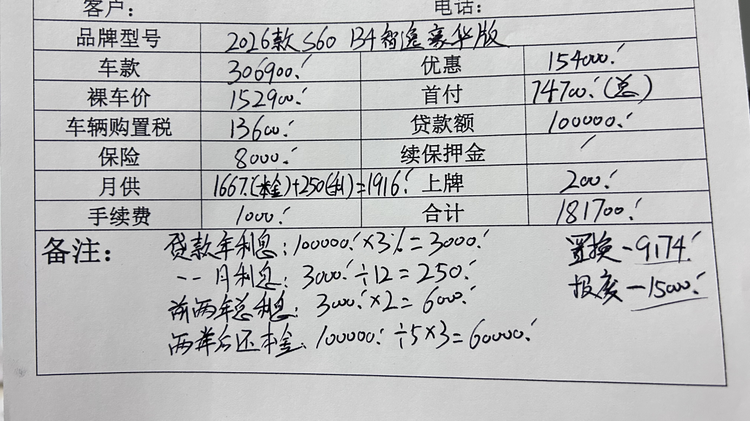 客户： 电话：
品牌型号 2026款 S60 B4智逸豪华版
车款 306900.- 优惠 154000.-
裸车价 152900.- 首付 74700.-(总)
车辆购置税 13600.- 贷款额 100000.-
保险 8000.- 续保押金 /
月供 1667.(本金)+250(利)=1916.- 上牌 200.-
手续费 1000.- 合计 181700.-
备注： 贷款年利息：100000.-×3%=3000.- 置换-9174.-
-- 月利息：3000.-÷12=250.- 报废-15000.-
前两年总利息：3000.-×2=6000.-
两年后还本金：100000.-÷5×3=60000.-